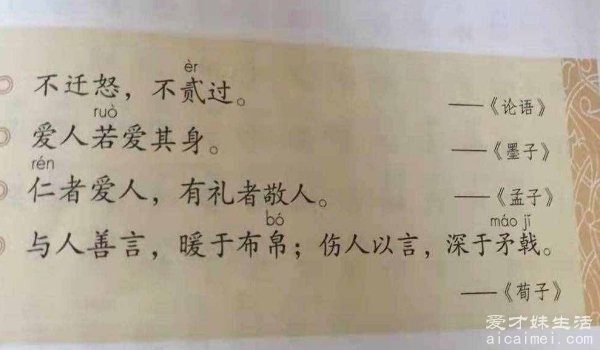 èr
不迁怒，不贰过。
——《论语》
ruò
爱人若爱其身。
——《墨子》
rén
仁者爱人，有礼者敬人。
——《孟子》
bó máo jǐ
与人善言，暖于布帛；伤人以言，深于矛戟。
——《荀子》
爱才妹生活
aicaimei.com